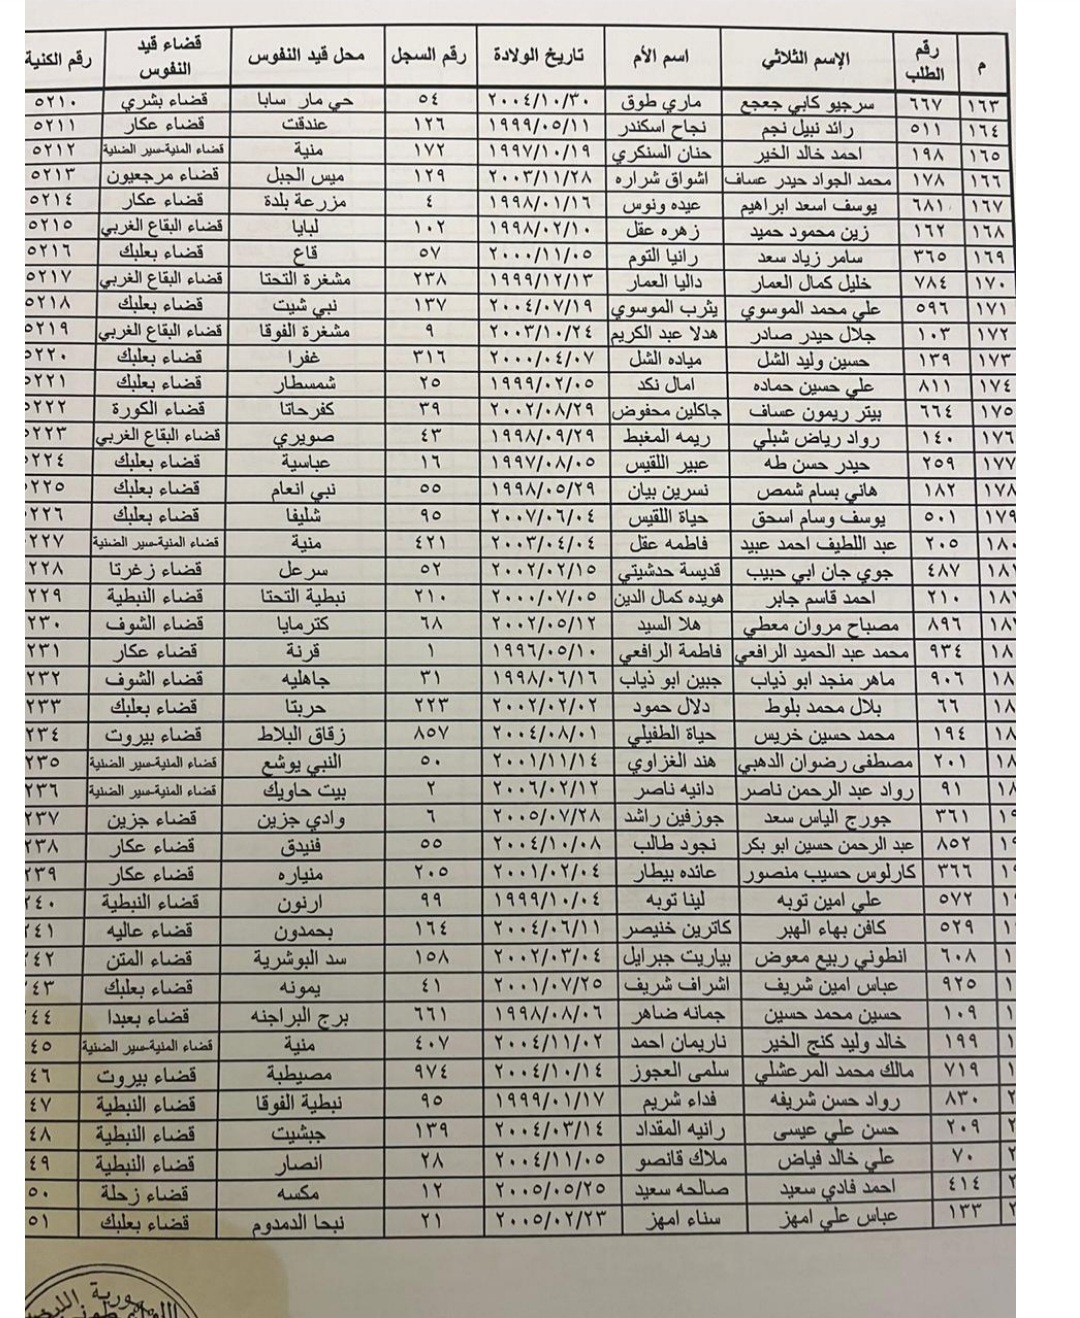 م رقم الطلب الإسم الثلاثي اسم الأم تاريخ الولادة رقم السجل محل قيد النفوس قضاء قيد النفوس رقم الكنية
١٦٣ ٦٦٧ سرجيو كابي جعجع ماري طوق ٢٠٠٤/١٠/٣٠ ٥٤ حي مار سابا قضاء بشري ٥٢١٠
١٦٤ ٥١١ رائد نبيل نجم نجاح اسكندر ١٩٩٩/٠٥/١١ ١٢٦ عندقت قضاء عكار ٥٢١١
١٦٥ ١٩٨ احمد خالد الخير حنان السنكري ١٩٩٧/١٠/١٩ ١٧٢ منية قضاء المنية-سير الضنية ٥٢١٢
١٦٦ ١٧٨ محمد الجواد حيدر عساف اشواق شراره ٢٠٠٣/١١/٢٨ ١٢٩ ميس الجبل قضاء مرجعيون ٥٢١٣
١٦٧ ٦٨١ يوسف اسعد ابراهيم عيده ونوس ١٩٩٨/٠١/١٦ ٤ مزرعة بلدة قضاء عكار ٥٢١٤
١٦٨ ١٦٢ زين محمود حميد زهره عقل ١٩٩٨/٠٢/١٠ ١٠٢ لبايا قضاء البقاع الغربي ٥٢١٥
١٦٩ ٣٦٥ سامر زياد سعد رانيا التوم ٢٠٠٠/١١/٠٥ ٥٧ قاع قضاء بعلبك ٥٢١٦
١٧٠ ٧٨٤ خليل كمال العمار داليا العمار ١٩٩٩/١٢/١٣ ٢٣٨ مشغرة التحتا قضاء البقاع الغربي ٥٢١٧
١٧١ ٥٩٦ علي محمد الموسوي يثرب الموسوي ٢٠٠٤/٠٧/١٩ ١٣٧ نبي شيت قضاء بعلبك ٥٢١٨
١٧٢ ١٠٣ جلال حيدر صادر هدلا عبد الكريم ٢٠٠٣/١٠/٢٤ ٩ مشغرة الفوقا قضاء البقاع الغربي ٥٢١٩
١٧٣ ١٣٩ حسين وليد الشل مياده الشل ٢٠٠٠/٠٤/٠٧ ٣١٦ غفرا قضاء بعلبك ٥٢٢٠
١٧٤ ٨١١ علي حسين حماده امال نكد ١٩٩٩/٠٢/٠٥ ٢٥ شمسطار قضاء بعلبك ٥٢٢١
١٧٥ ٦٦٤ بيتر ريمون عساف جاكلين محفوض ٢٠٠٢/٠٨/٢٩ ٣٩ كفرحاتا قضاء الكورة ٥٢٢٢
١٧٦ ١٤٠ رواد رياض شبلي ريمه المغبط ١٩٩٨/٠٩/٢٩ ٤٣ صويري قضاء البقاع الغربي ٢٢٣
١٧٧ ٢٥٩ حيدر حسن طه عبير اللقيس ١٩٩٧/٠٨/٠٥ ١٦ عباسية قضاء بعلبك ٢٢٤
١٧٨ ١٨٢ هاني بسام شمص نسرين بيان ١٩٩٨/٠٥/٢٩ ٥٥ نبي انعام قضاء بعلبك ٢٢٥
١٧٩ ٥٠١ يوسف وسام اسحق حياة اللقيس ٢٠٠٧/٠٦/٠٤ ٩٥ شليفا قضاء بعلبك ٢٢٦
١٨٠ ٢٠٥ عبد اللطيف احمد عبيد فاطمه عقل ٢٠٠٣/٠٤/٠٤ ٤٢١ منية قضاء المنية-سير الضنية ٢٢٧
١٨١ ٤٨٧ جوي جان ابي حبيب قديسة حدشيتي ٢٠٠٢/٠٢/١٥ ٥٢ سرعل قضاء زغرتا ٢٢٨
١٨ ٢١٠ احمد قاسم جابر هويده كمال الدين ٢٠٠٠/٠٧/٠٥ ٢١٠ نبطية التحتا قضاء النبطية ٢٢٩
١٨ ٨٩٦ مصباح مروان معطي هلا السيد ٢٠٠٢/٠٥/١٢ ٦٨ كترمايا قضاء الشوف ٢٣٠
١٨ ٩٣٤ محمد عبد الحميد الرافعي فاطمة الرافعي ١٩٩٦/٠٥/١٠ ١ قرنة قضاء عكار ٢٣١
١٨ ٩٠٦ ماهر منجد ابو ذياب جبين ابو ذياب ١٩٩٨/٠٦/١٦ ٣١ جاهليه قضاء الشوف ٢٣٢
١٨ ٦٦ بلال محمد بلوط دلال حمود ٢٠٠٢/٠٢/٠٢ ٢٢٣ حربتا قضاء بعلبك ٢٣٣
١٨ ١٩٤ محمد حسين خريس حياة الطفيلي ٢٠٠٤/٠٨/٠١ ٨٥٧ زقاق البلاط قضاء بيروت ٢٣٤
١٨ ٢٠١ مصطفى رضوان الدهبي هند الغزاوي ٢٠٠١/١١/١٤ ٥٠ النبي يوشع قضاء المنية-سير الضنية ٢٣٥
١٨ ٩١ رواد عبد الرحمن ناصر دانيه ناصر ٢٠٠٦/٠٢/١٢ ٢ بيت حاويك قضاء المنية-سير الضنية ٢٣٦
١٩ ٣٦١ جورج الياس سعد جوزفين راشد ٢٠٠٥/٠٧/٢٨ ٦ وادي جزين قضاء جزين ٢٣٧
١٩ ٨٥٢ عبد الرحمن حسين ابو بكر نجود طالب ٢٠٠٤/١٠/٠٨ ٥٥ فنيدق قضاء عكار ٢٣٨
١٩ ٣٦٦ كارلوس حسيب منصور عائده بيطار ٢٠٠١/٠٢/٠٤ ٢٠٥ منياره قضاء عكار ٢٣٩
١ ٥٧٢ علي امين توبه لينا توبه ١٩٩٩/١٠/٠٤ ٩٩ ارنون قضاء النبطية ٢٤٠
١ ٥٢٩ كافن بهاء الهبر كاترين خنيصر ٢٠٠٤/٠٦/١١ ١٦٤ بحمدون قضاء عاليه ٢٤١
١ ٦٠٨ انطوني ربيع معوض بياريت جبرايل ٢٠٠٢/٠٣/٠٤ ١٥٨ سد البوشرية قضاء المتن ٢٤٢
١ ٩٢٥ عباس امين شريف اشراف شريف ٢٠٠١/٠٧/٢٥ ٤١ يمونه قضاء بعلبك ٤٣
١ ١٠٩ حسين محمد حسين جمانه ضاهر ١٩٩٨/٠٨/٠٦ ٦٦١ برج البراجنه قضاء بعبدا ٤٤
١ ١٩٩ خالد وليد كنج الخير ناريمان احمد ٢٠٠٤/١١/٠٢ ٤٠٧ منية قضاء المنية-سير الضنية ٤٥
١ ٧١٩ مالك محمد المرعشلي سلمى العجوز ٢٠٠٤/١٠/١٤ ٩٧٤ مصيطبة قضاء بيروت ٤٦
٢ ٨٣٠ رواد حسن شريفه فداء شريم ١٩٩٩/٠١/١٧ ٩٥ نبطية الفوقا قضاء النبطية ٤٧
٢ ٢٠٩ حسن علي عيسى رانيه المقداد ٢٠٠٤/٠٣/١٤ ١٣٩ جبشيت قضاء النبطية ٤٨
٢ ٧٠ علي خالد فياض ملاك قانصو ٢٠٠٤/١١/٠٥ ٢٨ انصار قضاء النبطية ٤٩
٢ ٤١٤ احمد فادي سعيد صالحه سعيد ٢٠٠٥/٠٥/٢٥ ١٢ مكسه قضاء زحلة ٥٠
٢ ١٣٣ عباس علي امهز سناء امهز ٢٠٠٥/٠٢/٢٣ ٢١ نبحا الدمدوم قضاء بعلبك ٥١